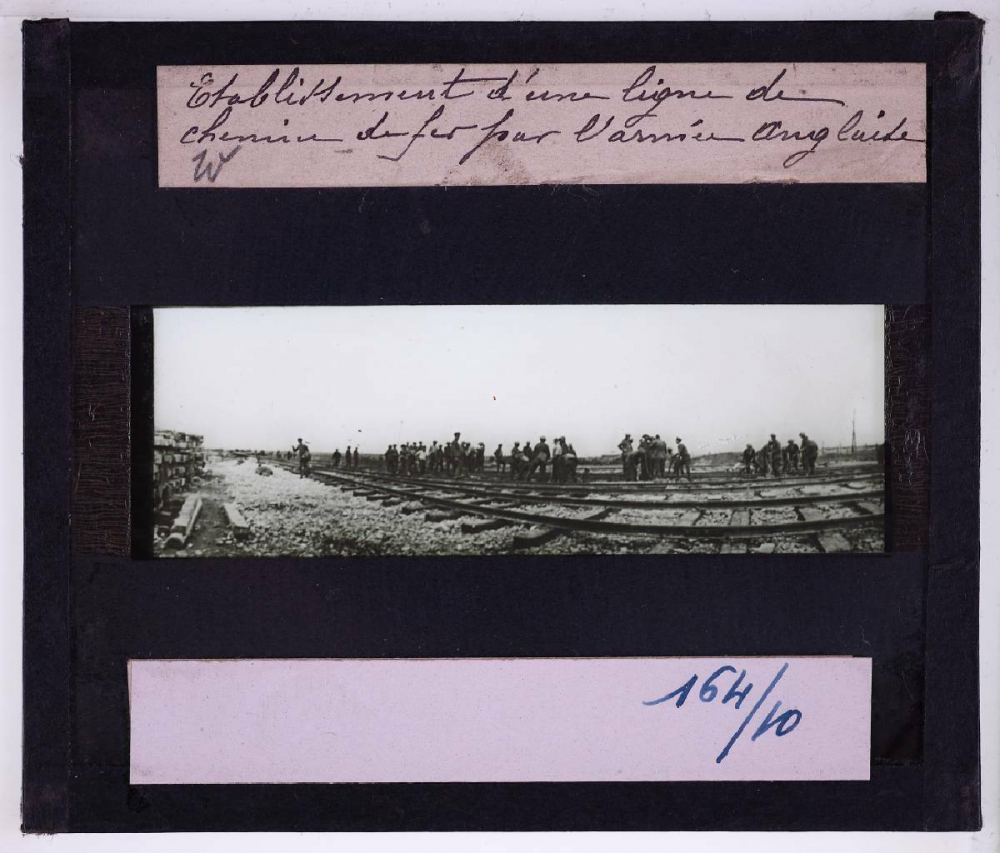 Etablissement d'une ligne de
chemin de fer par l'armée Anglaise
W
164/10